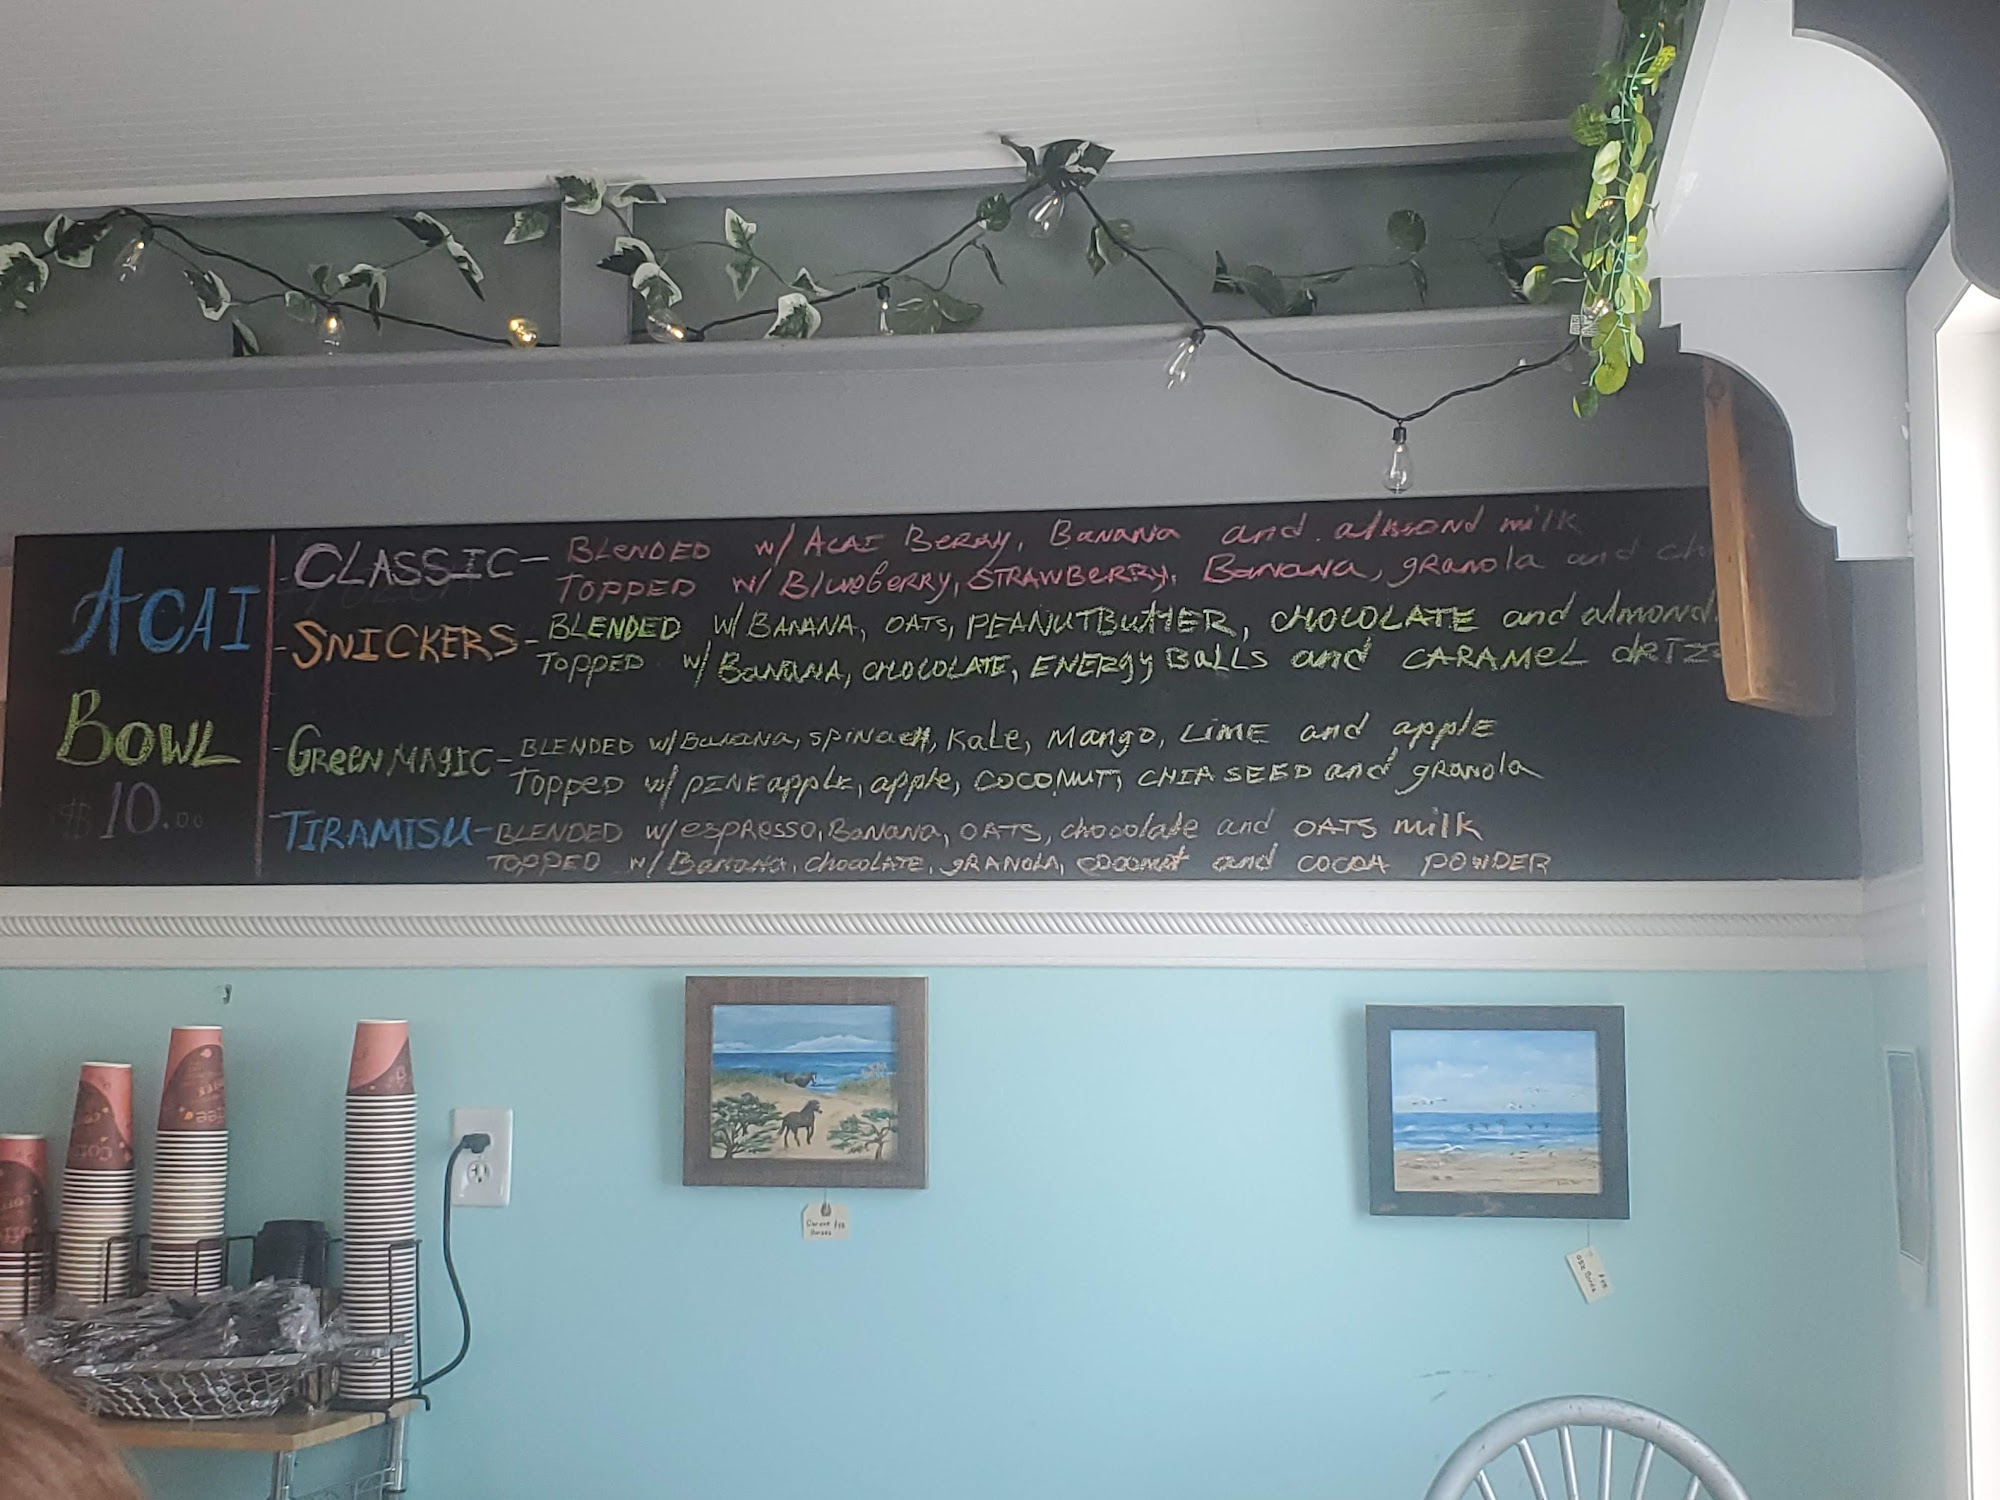 ACAI
BOWL
$10.00
- CLASSIC - BLENDED w/ ACAI BERRY, BANANA and almond milk
TOPPED w/ BLUEBERRY, STRAWBERRY, BANANA, granola and
- SNICKERS - BLENDED w/ BANANA, OATS, PEANUTBUTTER, CHOCOLATE and almond
TOPPED w/ BANANA, CHOCOLATE, ENERGY BALLS and CARAMEL
- GREEN MAGIC - BLENDED w/ Banana, SPINACH, Kale, Mango, LIME and apple
TOPPED w/ PINEapple, apple, COCONUT, CHIA SEED and granola
- TIRAMISU - BLENDED w/ espresso, BANANA, OATS, chocolate and OATS milk
TOPPED w/ Banana, CHOCOLATE, GRANOLA, coconut and COCOA POWDER